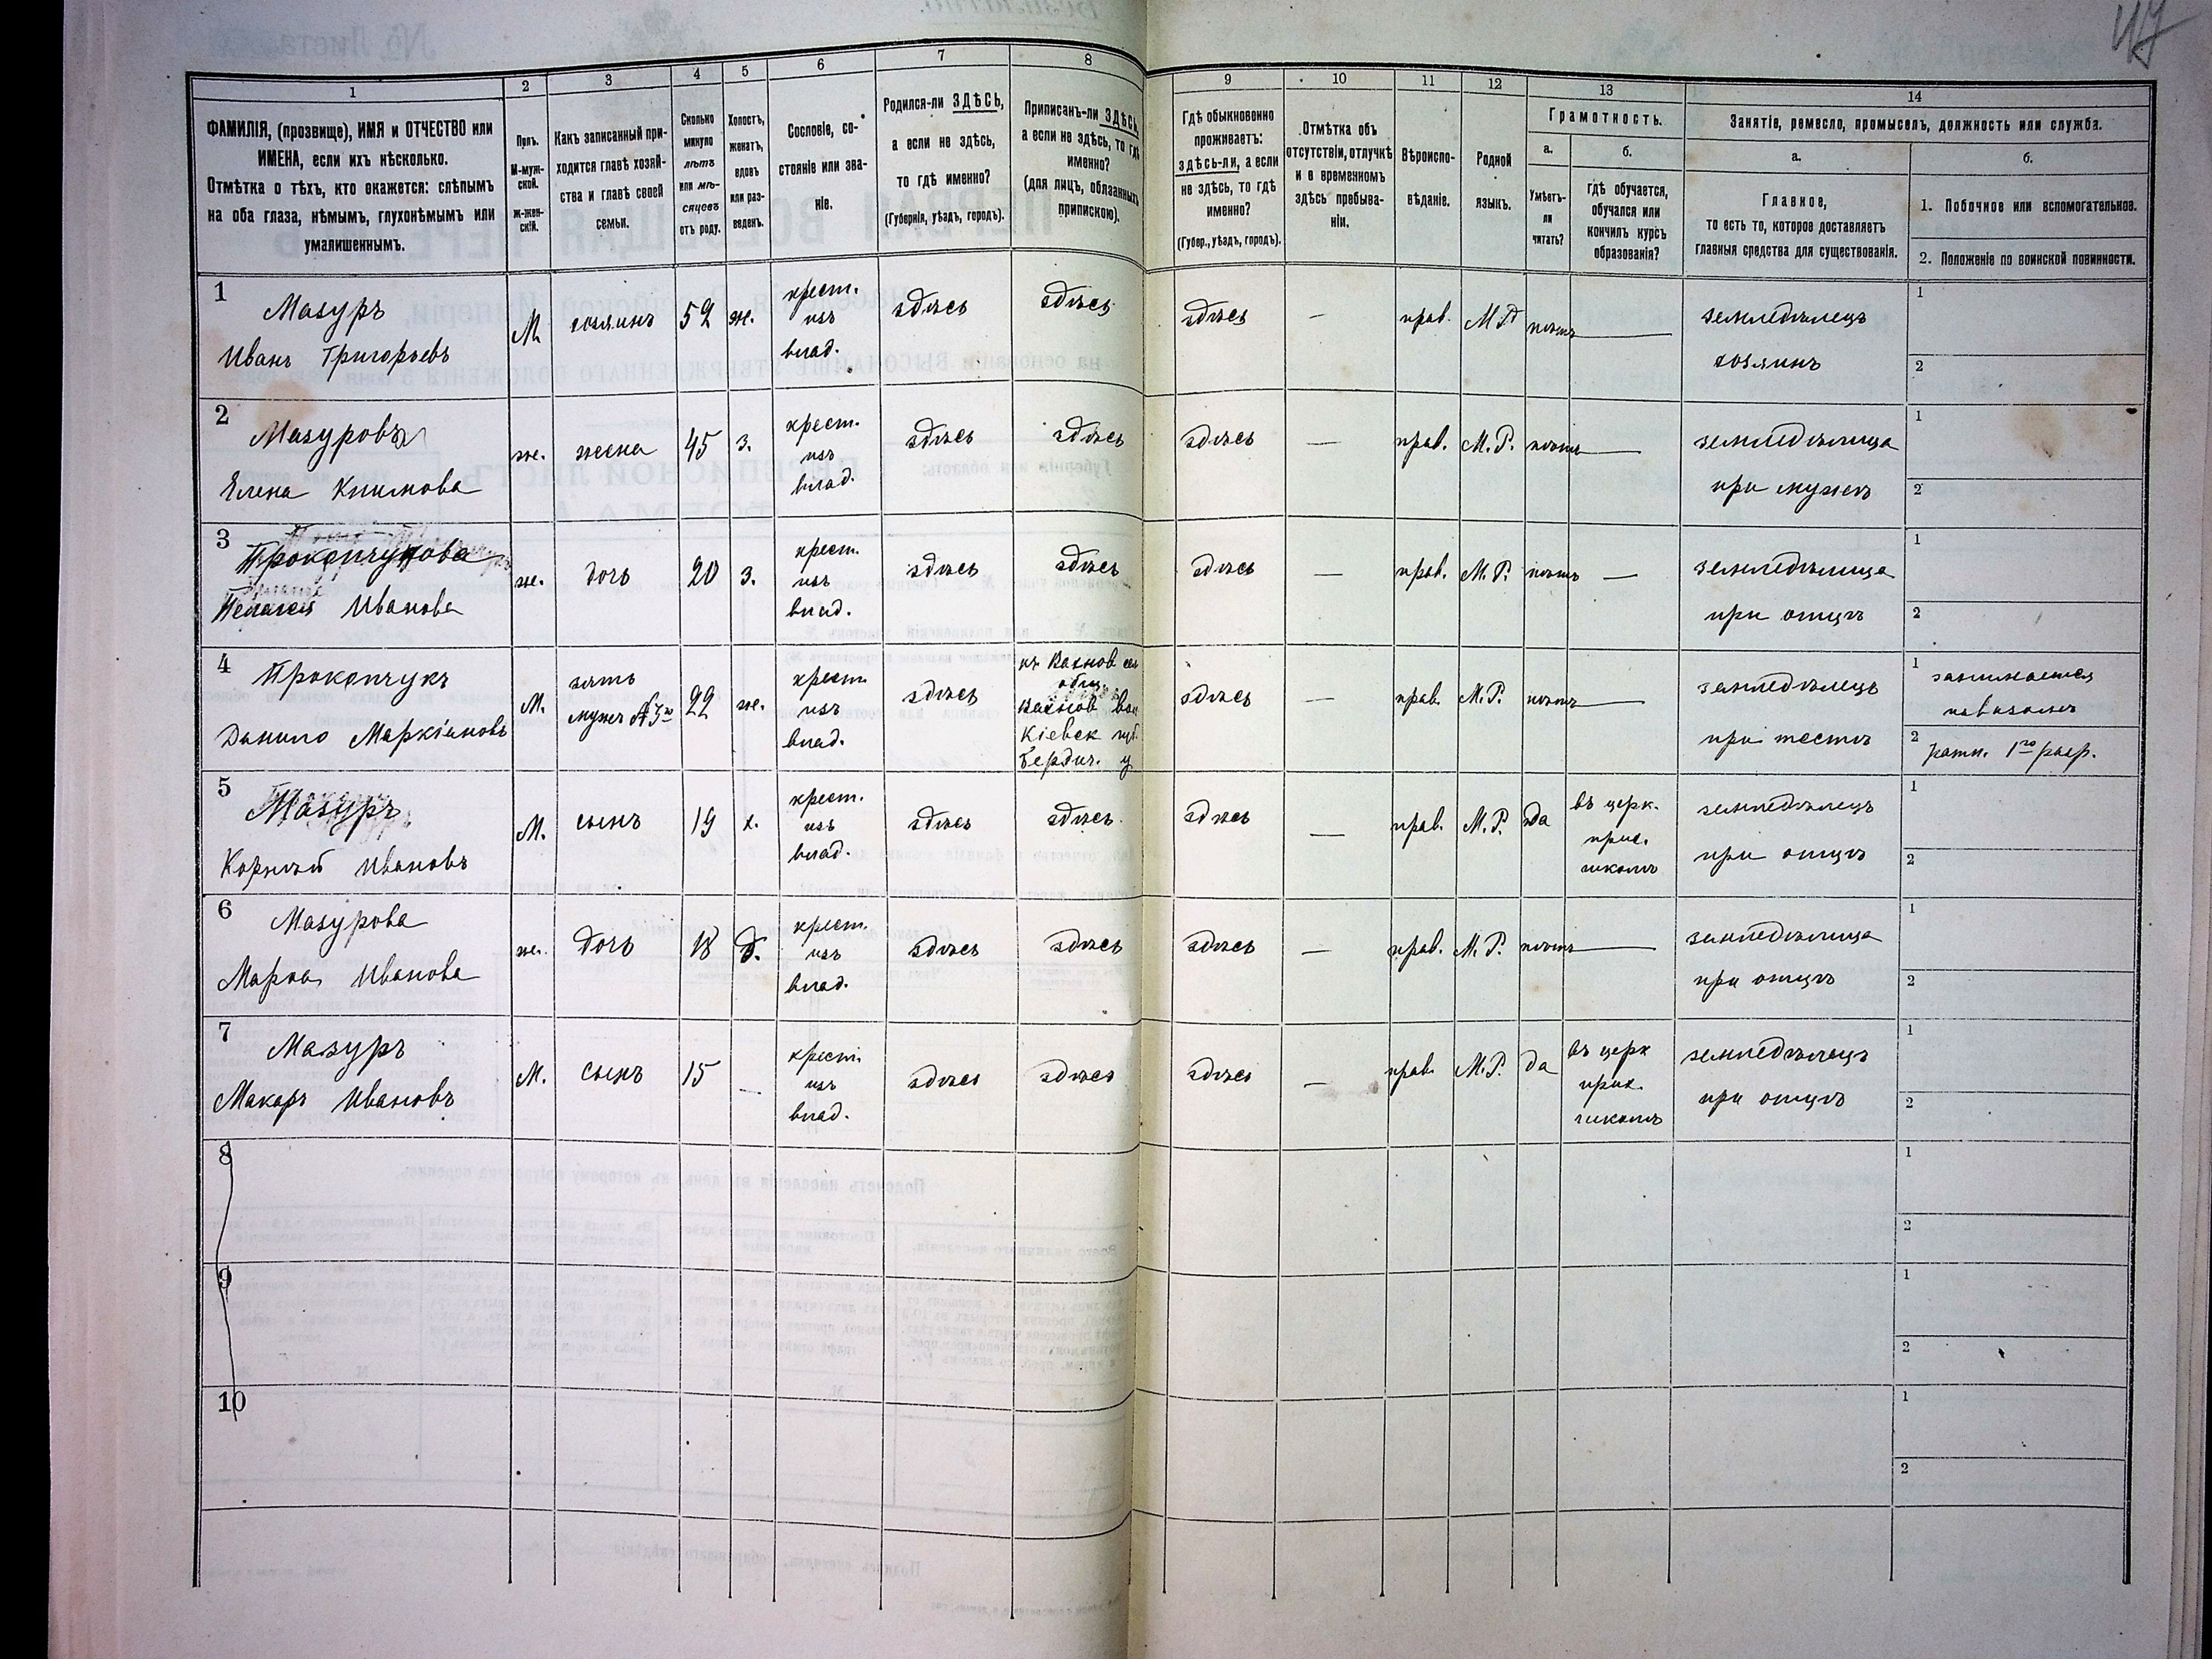 47
1 2 3 4 5 6 7 8 9 10 11 12 13 14
ФАМИЛІЯ, (прозвище), ИМЯ и ОТЧЕСТВО или
ИМЕНА, если ихъ нѣсколько.
Отмѣтка о тѣхъ, кто окажется: слѣпымъ
на оба глаза, нѣмымъ, глухонѣмымъ или
умалишеннымъ.
Полъ.
М-муж-
ской.
Ж-жен-
скій.
Какъ записанный при-
ходится главѣ хозяй-
ства и главѣ своей
семьи.
Сколько
минуло
лѣтъ
или мѣ-
сяцевъ
отъ роду.
Холостъ,
женатъ,
вдовъ
или раз-
веденъ.
Сословіе, со-
стояніе или зва-
ніе.
Родился-ли ЗДѢСЬ,
а если не здѣсь,
то гдѣ именно?
(Губернія, уѣздъ, городъ).
Приписанъ-ли ЗДѢСЬ,
а если не здѣсь, то гдѣ
именно?
(для лицъ, обязанныхъ
припискою).
Гдѣ обыкновенно
проживаетъ:
ЗДѢСЬ-ли, а если
не здѣсь, то гдѣ
именно?
(Губер., уѣздъ, городъ).
Отмѣтка объ
отсутствіи, отлучкѣ
и о временномъ
здѣсь пребыва-
ніи.
Вѣроиспо-
вѣданіе.
Родной
языкъ.
Грамотность.
а.
Умѣетъ-
ли
читать?
б.
гдѣ обучается,
обучался или
кончилъ курсъ
образованія?
Занятіе, ремесло, промыселъ, должность или служба.
а.
Главное,
то есть то, которое доставляетъ
главныя средства для существованія.
б.
1. Побочное или вспомогательное.
2. Положеніе по воинской повинности.
1
Мазуръ
Иванъ Григорьевъ
М.
хозяинъ
52
ж.
крест.
изъ
влад.
здѣсь
здѣсь
здѣсь
—
прав.
М.Р.
нѣтъ
земледѣлецъ
хозяинъ
1
2
2
Мазурова
Елена Климова
ж.
жена
45
з.
крест.
изъ
влад.
здѣсь
здѣсь
здѣсь
—
прав.
М.Р.
нѣтъ
земледѣлица
при мужѣ
1
2
3
Прокопчукова
Иванова
ж.
дочь
20
з.
крест.
изъ
влад.
здѣсь
здѣсь
здѣсь
—
прав.
М.Р.
нѣтъ
—
земледѣлица
при отцѣ
1
2
4
Прокопчукъ
Данило Маркіановъ
М.
зять
мужъ №3го
22
ж.
крест.
изъ
влад.
здѣсь
къ Вахнов сел
общ.
Вахнов вол
Кіевск губ.
Бердич. у
здѣсь
прав.
М.Р.
нѣтъ
земледѣлецъ
при тестѣ
1 занимается
извозомъ
2 ратн. 1го разр.
5
Мазуръ
Корнѣй Ивановъ
М.
сынъ
19
х.
крест.
изъ
влад.
здѣсь
здѣсь
здѣсь
—
прав.
М.Р.
да
въ церк.
прих.
школѣ
земледѣлецъ
при отцѣ
1
2
6
Мазурова
Марѳа Иванова
ж.
дочь
18
д.
крест.
изъ
влад.
здѣсь
здѣсь
здѣсь
—
прав.
М.Р.
нѣтъ
земледѣлица
при отцѣ
1
2
7
Мазуръ
Макаръ Ивановъ
М.
сынъ
15
—
крест.
изъ
влад.
здѣсь
здѣсь
здѣсь
—
прав.
М.Р.
да
въ церк
прих.
школѣ
земледѣлецъ
при отцѣ
1
2
8
1
2
9
1
2
10
1
2